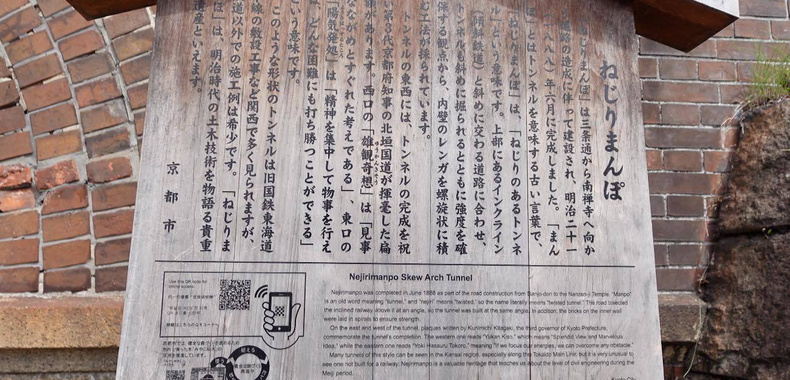 ねじりまんぽ
「ねじりまんぽ」は三条通から南禅寺へ向か
道路の造成に伴って建設され、明治二十一
八八八）年六月に完成しました。「まん
ぽ」とはトンネルを意味する古い言葉で、
「ねじりまんぽ」は、「ねじりのあるトンネ
ル」という意味です。上部にあるインクライン
（傾斜鉄道）と斜めに交わる道路に合わせ、
トンネルも斜めに掘られるとともに強度を確
保する観点から、内壁のレンガを螺旋状に積
む工法が採られています。
トンネルの東西には、トンネルの完成を祝
い第3代京都府知事の北垣国道が揮毫した扁
額があります。西口の「雄観奇想」は「見事
なながめとすぐれた考えである」、東口の
「陽気発処」は「精神を集中して物事を行え
ば、どんな困難にも打ち勝つことができる」
という意味です。
このような形状のトンネルは旧国鉄東海道
線の敷設工事など関西で多く見られますが、
道以外での施工例は希少です。「ねじりま
ぽ」は、明治時代の土木技術を物語る貴重
遺産といえます。
京都市
Nejirimanpo Skew Arch Tunnel
Nejirimanpo was completed in June 1888 as part of the road construction from Sanjo-dori to the Nanzen-ji Temple. "Manpo"
is an old word meaning "tunnel," and "nejiri" means "twisted," so the name literally means "twisted tunnel." The road bisected
the inclined railway above it at an angle, so the tunnel was built at the same angle. In addition, the bricks on the inner wall
were laid in spirals to ensure strength.
On the east and west of the tunnel, plaques written by Kunimichi Kitagaki, the third governor of Kyoto Prefecture,
commemorate the tunnel's completion. The western one reads "Yukan Kiso," which means "Splendid View and Marvelous
Idea," while the eastern one reads "Yoki Hassuru Tokoro," meaning "If we focus our energies, we can overcome any obstacle."
Many tunnels of this style can be seen in the Kansai region, especially along the Tokaido Main Line, but it is very unusual to
see one not built for a railway. Nejirimanpo is a valuable heritage that teaches us about the level of civil engineering during the
Meiji period.
Use this QR code for